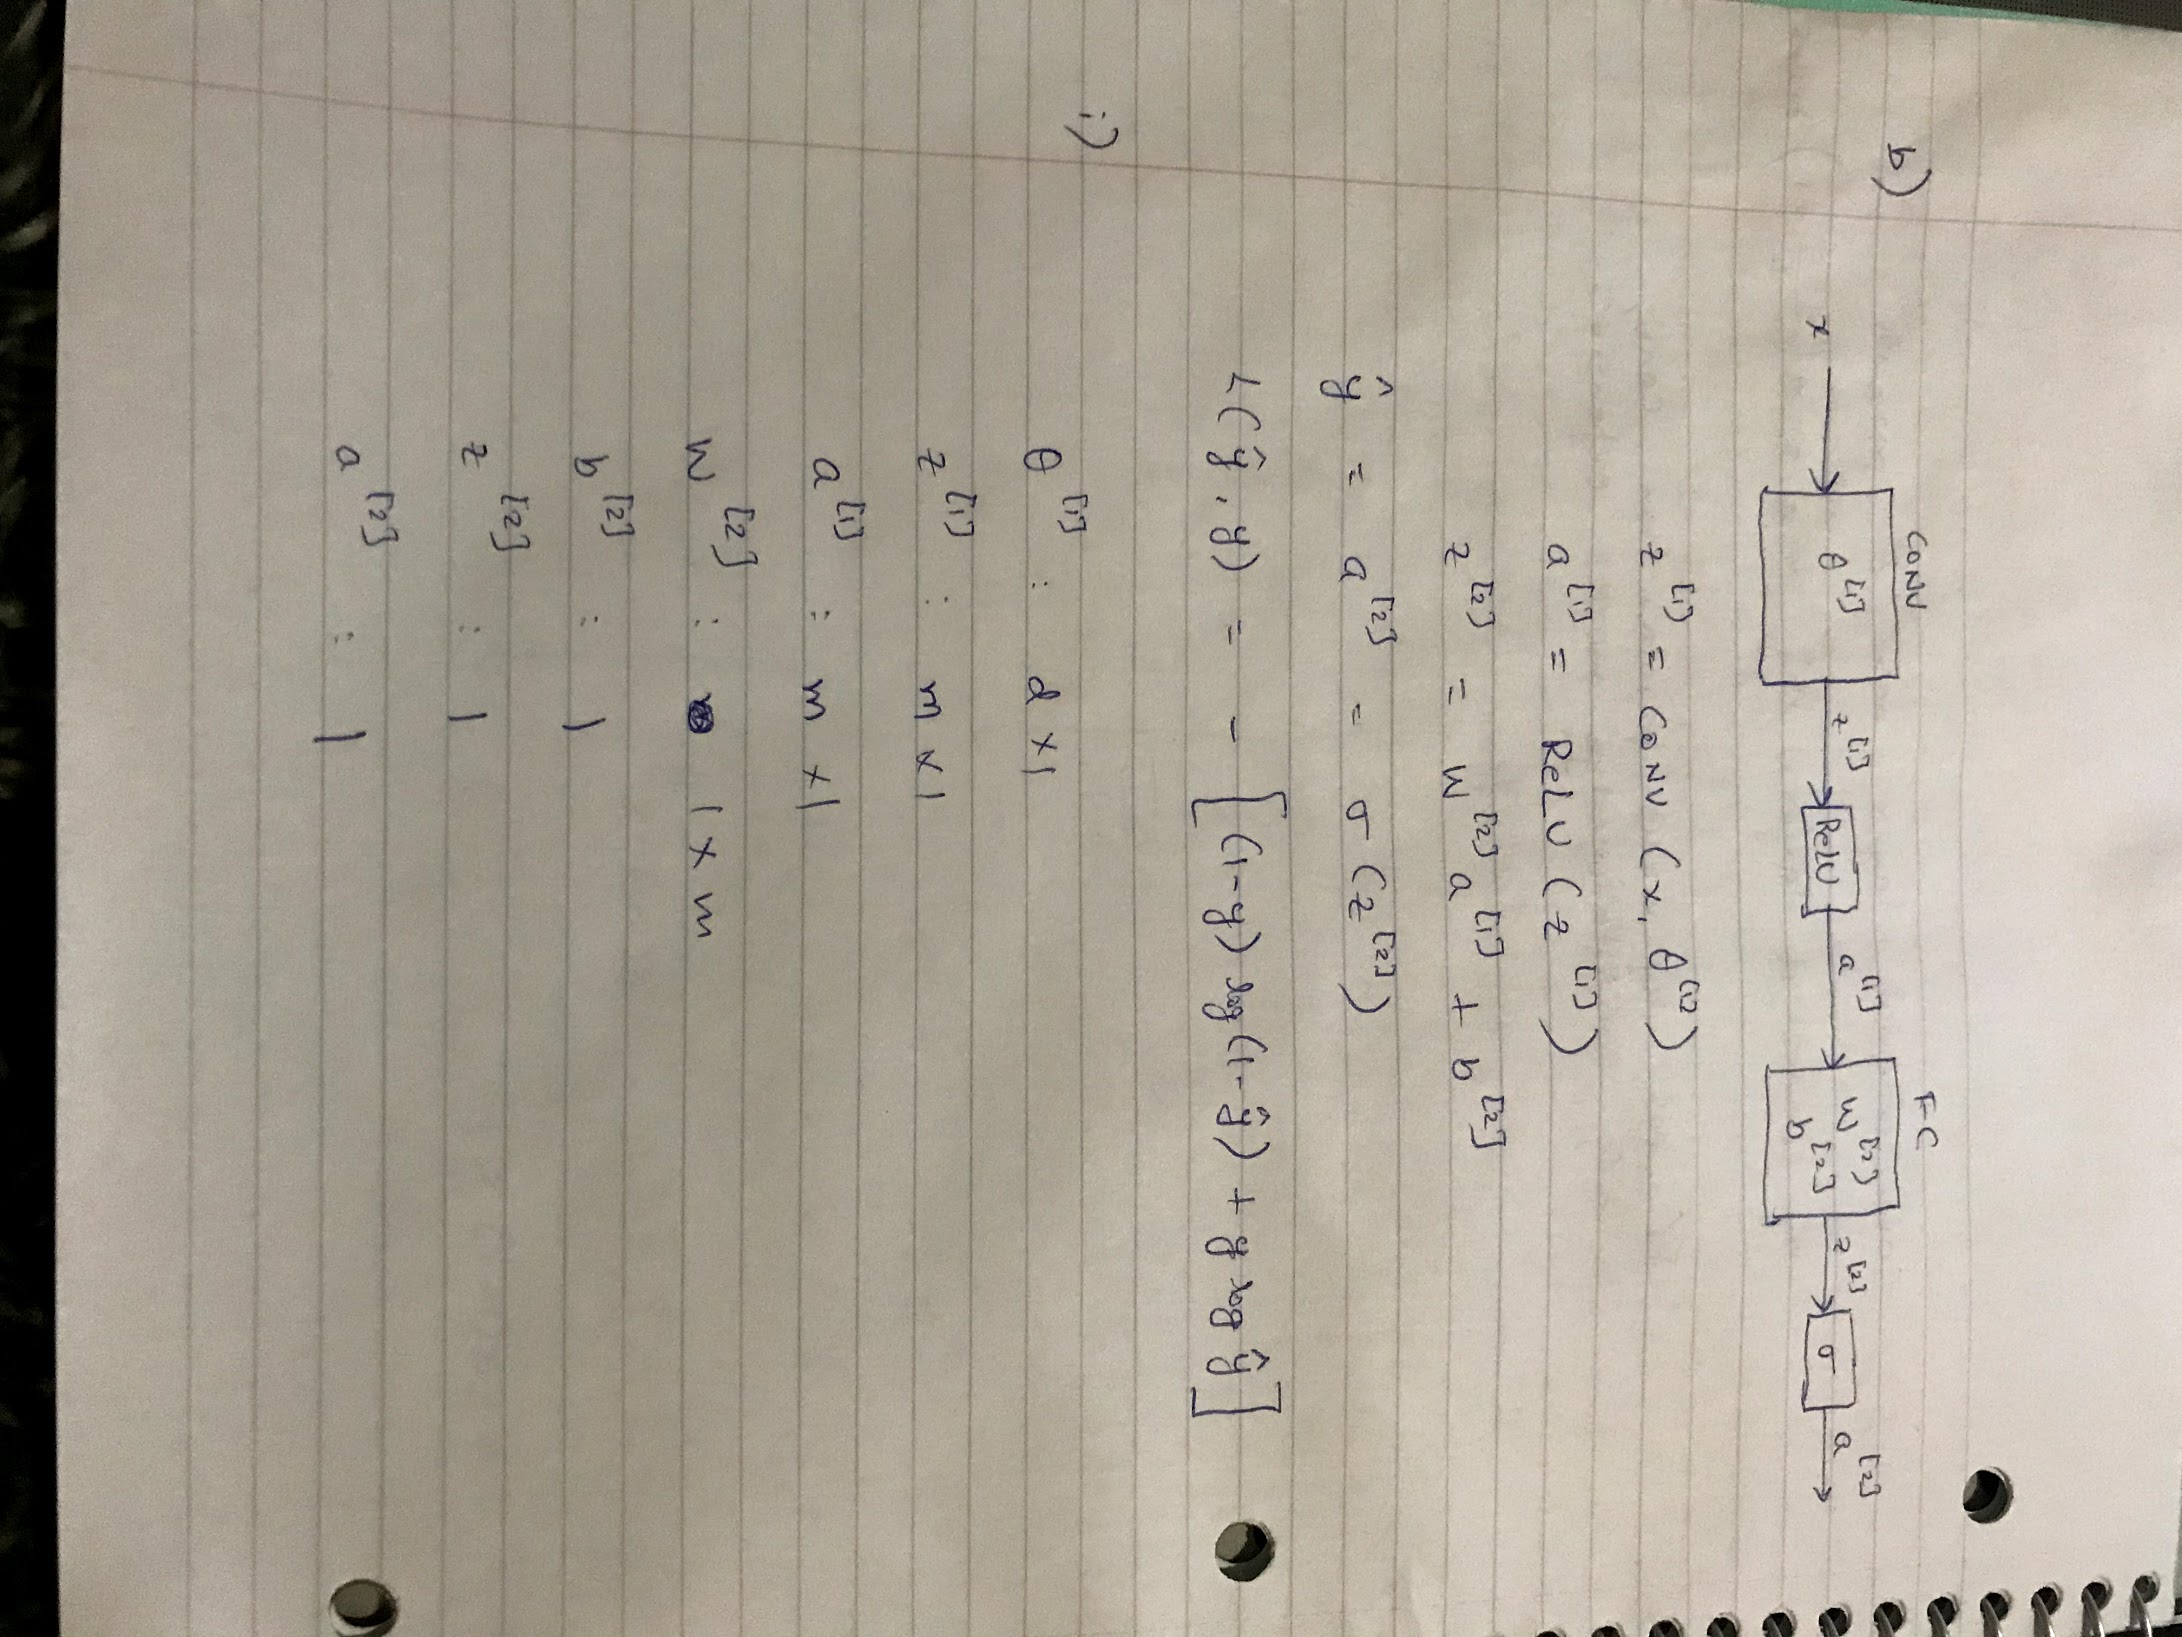 b)
CONV FC
x → θ^[1] z^[1] → ReLU a^[1] → W^[2] b^[2] z^[2] → σ a^[2] →
z^[1] = CONV (x, θ^[1])
a^[1] = ReLU (z^[1])
z^[2] = W^[2] a^[1] + b^[2]
ŷ = a^[2] = σ (z^[2])
L(ŷ, y) = - [(1-y) log(1-ŷ) + y log ŷ]
i)
θ^[1] : d × 1
z^[1] : m × 1
a^[1] : m × 1
W^[2] : 1 × m
b^[2] : 1
z^[2] : 1
a^[2] : 1